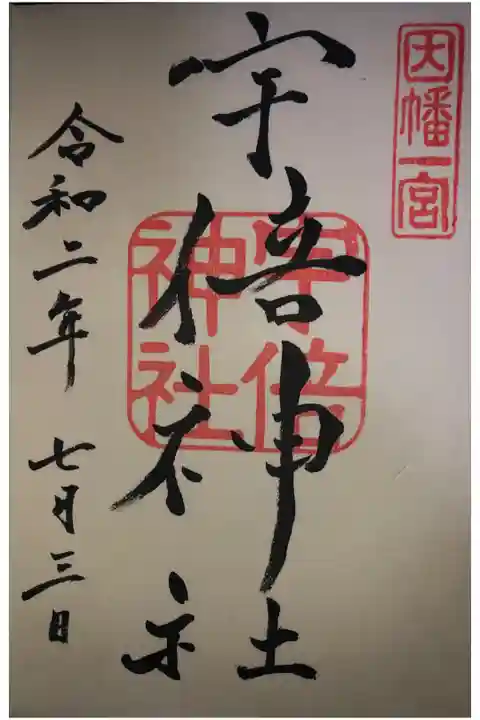 因幡一宮
宇倍神社
宇倍
神社
令和二年 七月三日